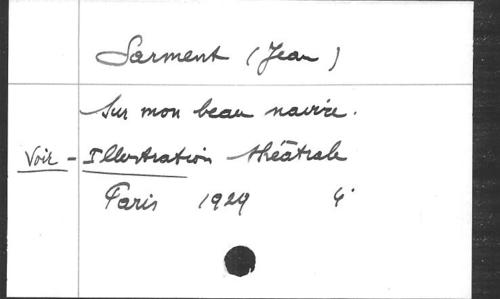 Sarment (Jean)
Sur mon beau navire.
Voir - Illustration théâtrale
Paris 1929 4°